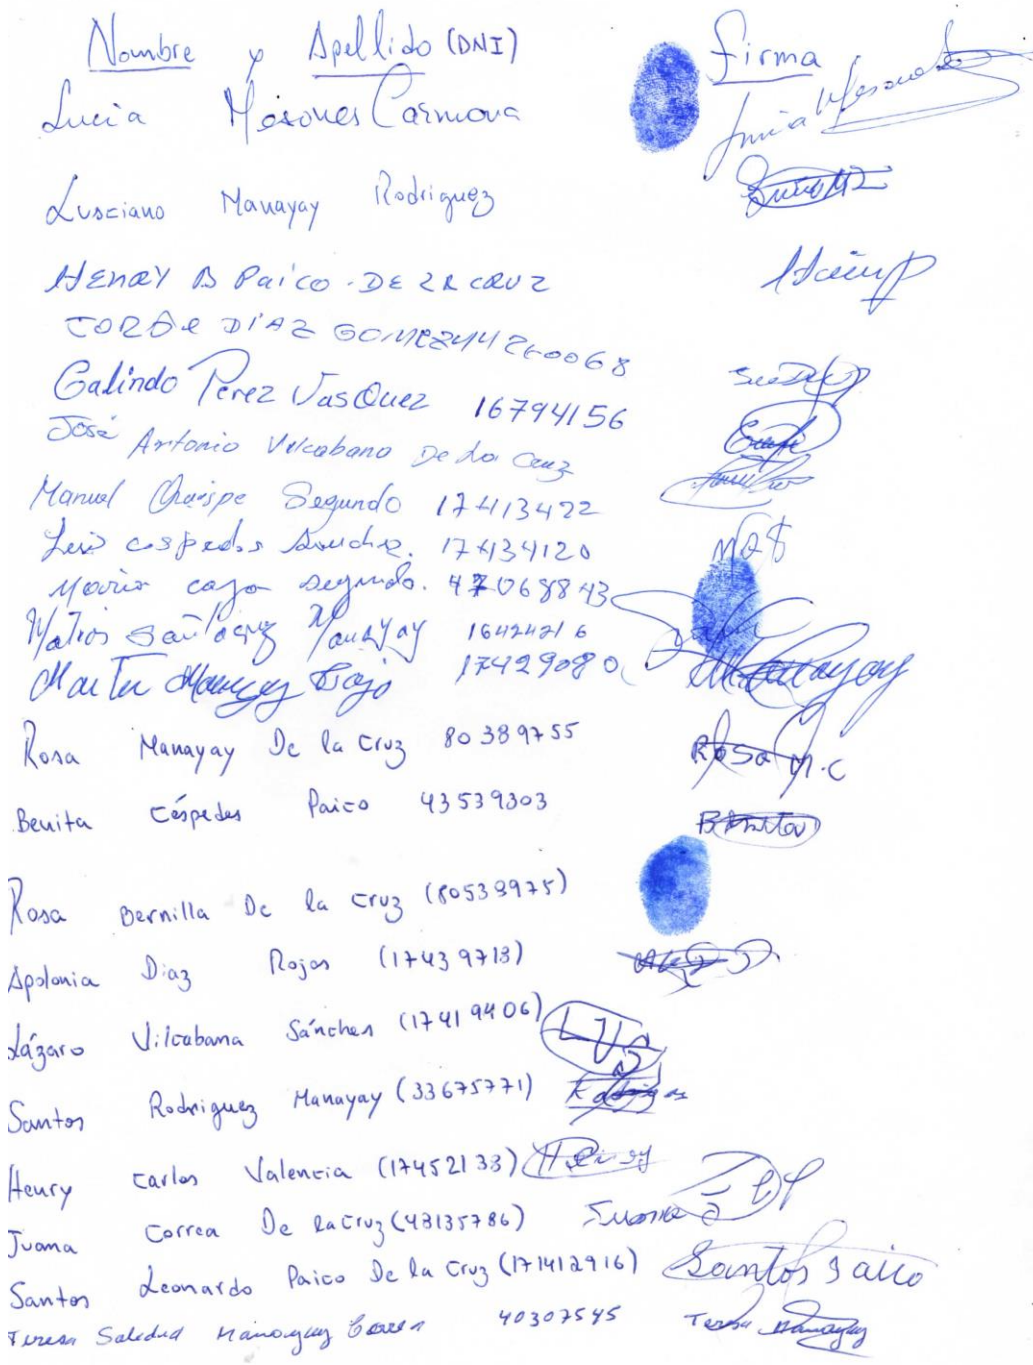 Nombre y Apellido (DNI) Firma
Lucia Mesones Carmona Lucia Mesones
Lusciano Manayay Rodriguez
HENRY B Paico DE LA CRUZ
JORGE DÍAZ GOMEZ 44260068
Galindo Perez VasQuez 16794156
José Antonio Vilcabana De La Cruz
Manuel Quispe Segundo 17413422
Luis cespedes Sanchez. 17434120
Mario cajo segundo. 47068843
Matios Santacruz Manayay 16424216
Martin Manayay Cajo 17429080 Manayay
Rosa Manayay De la Cruz 80389755 Rosa M.C
Benita Céspedes Paico 43539303
Rosa Bernilla De la Cruz (80539975)
Apolonia Diaz Rojas (17439713)
Lázaro Vilcabana Sánchez (17419406) LVS
Santos Rodriguez Manayay (33675771)
Henry Carlos Valencia (17452133) Henry
Juana Correa De la Cruz (43135786) Juana
Santos Leonardo Paico De la Cruz (17412916) Santos Paico
Teresa Saledad Manayay Correa 40307545 Teresa Manayay